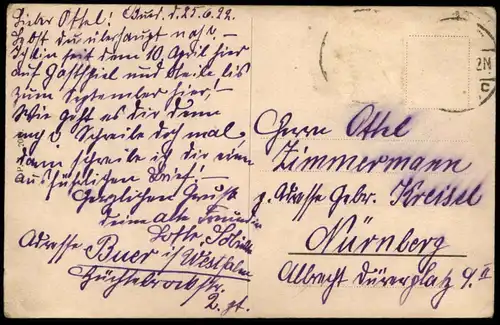 Lieber Ottel! Buer, d. 25.6.22.
Lebst du überhaupt noch –
Ich bin seit dem 10. April hier
auf Gastspiel und bleibe bis
zum September hier! –
Wie geht es dir denn
Schreibe doch mal,
dann schreibe ich dir einen
ausführlichen Brief! –
Herzlichen Gruß
deine alte Freundin
Lotte
Adresse Buer i/Westfalen
2. St.
Herrn Ottel
Zimmermann
z. Adresse Gebr. Kreisel
Nürnberg
Albrecht Dürerplatz 4. II
2N
C